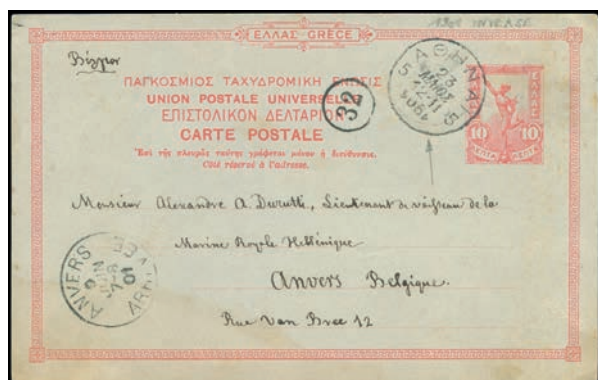 1901 INVERSE
ΕΛΛΑΣ GRÈCE
Βέλγιον
ΠΑΓΚΟΣΜΙΟΣ ΤΑΧΥΔΡΟΜΙΚΗ ΕΝΩΣΙΣ
UNION POSTALE UNIVERSELLE
ΕΠΙΣΤΟΛΙΚΟΝ ΔΕΛΤΑΡΙΟΝ
CARTE POSTALE
Ἐπὶ τῆς πλευρᾶς ταύτης γράφεται μόνον ἡ διεύθυνσις.
Côté réservé à l'adresse.
32
ΑΘΗΝΑΙ 5
23
ΜΑΙΟΣ
ΕΛΛΑΣ
10 10
ΛΕΠΤΑ ΛΕΠΤΑ
Monsieur Alexandre A. Lieutenant de vaisseau de la
Marine Royale Hellénique
Anvers Belgique.
Rue Van Bree 12
ANVERS
JUIN
7-8
01